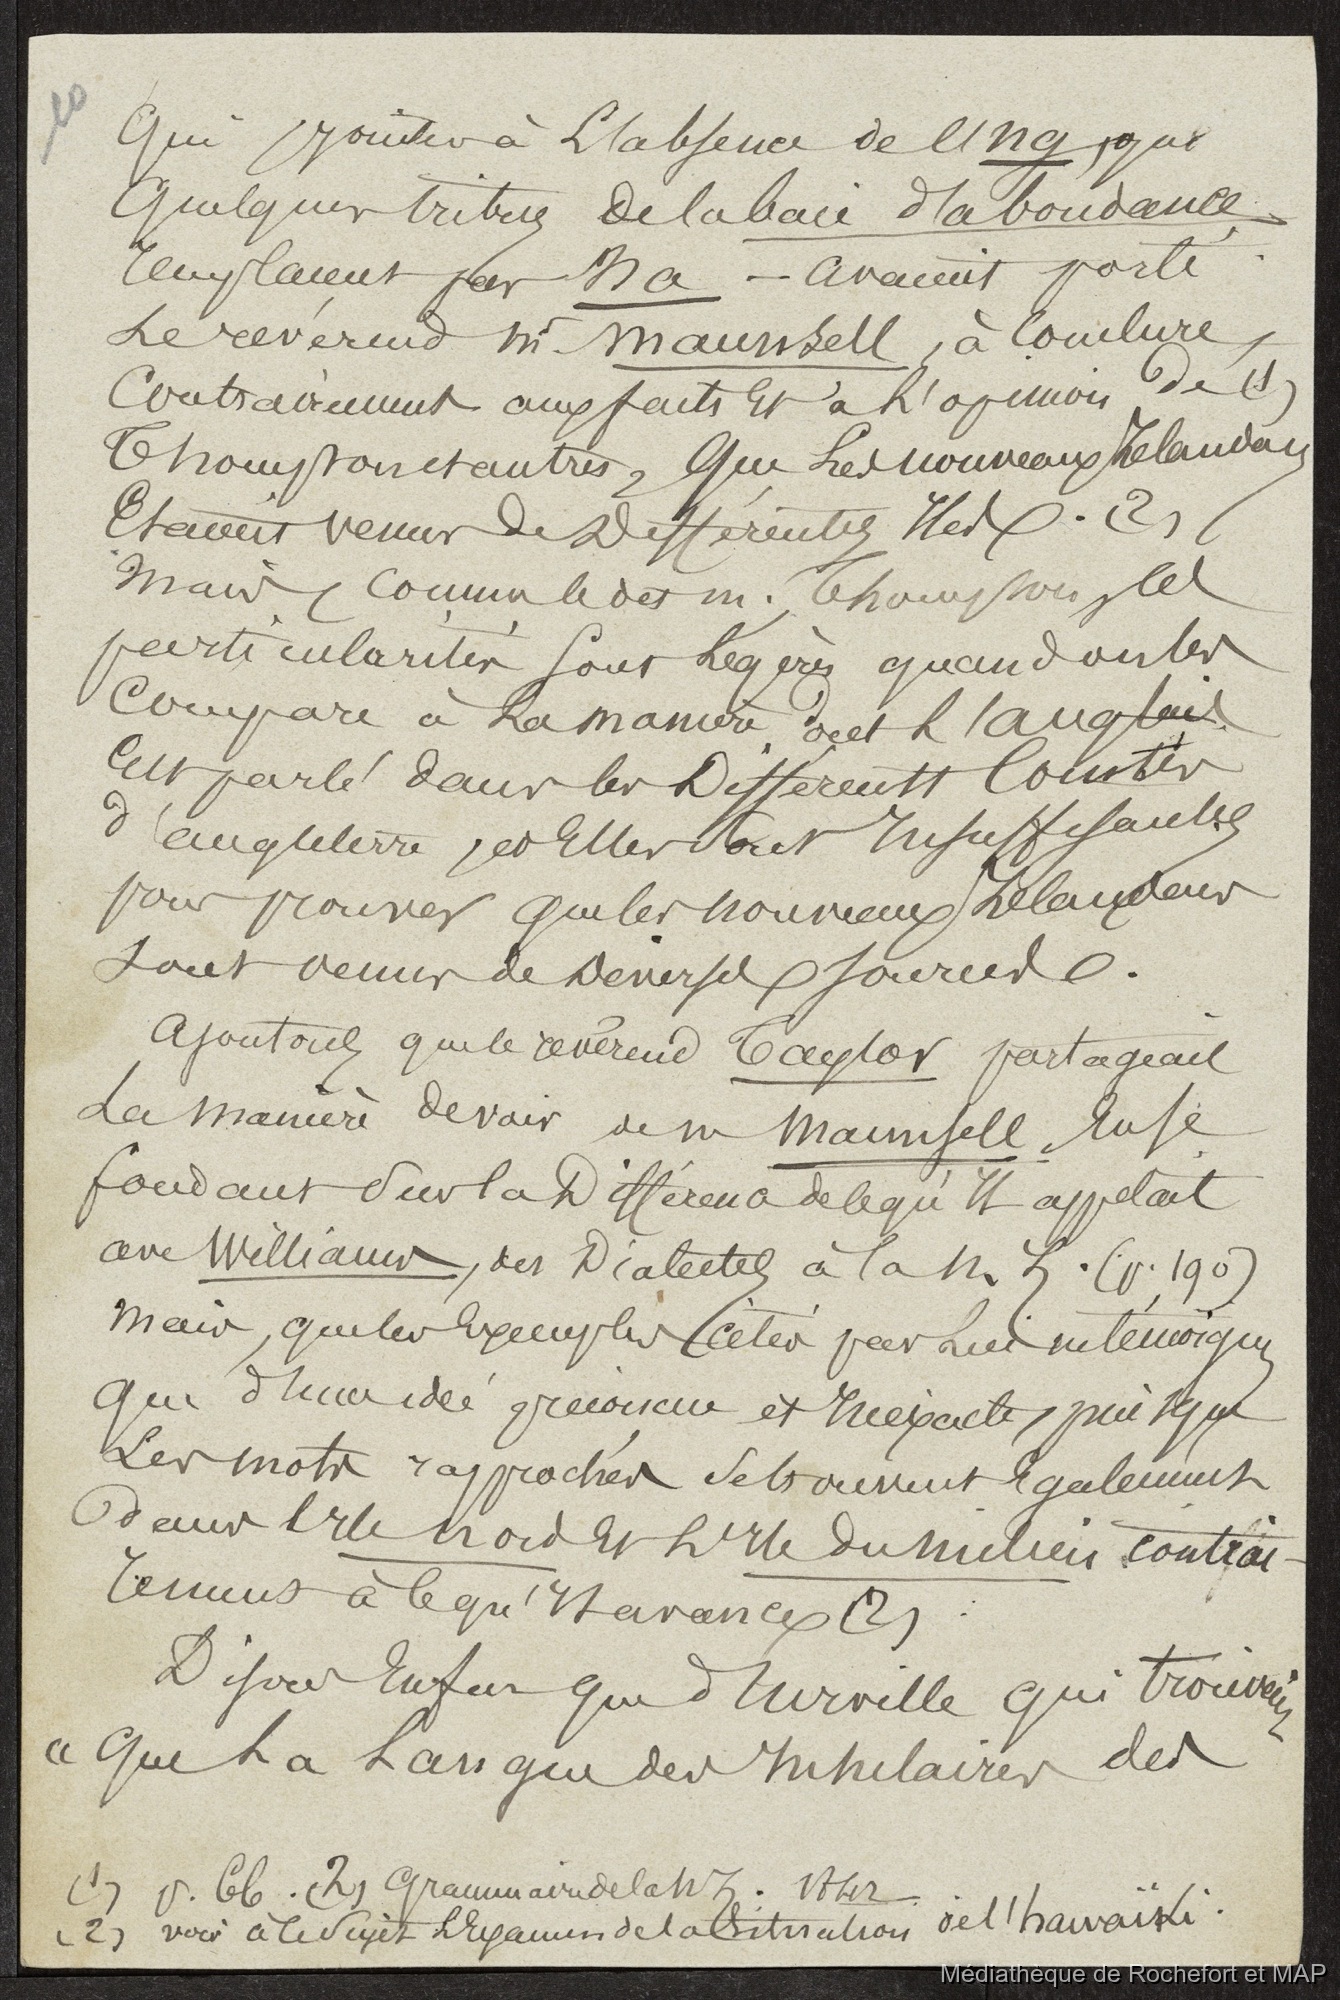 10
qui jointes à l'absence de l'ng, que
quelques tribus de la baie d'abondance
remplacent par na — avaient porté
le révérend Mr Maunsell, à conclure,
contrairement aux faits et à l'opinion de (1)
Thompson et autres, que les nouveaux Zélandais
étaient venus de différentes Iles. (2)
mais, comme le dit M. Thompson, ces
particularités sont légères quand on les
compare à la manière dont l'anglais
est parlé dans les différents Comtés
d'angleterre, et elles sont insuffisantes
pour prouver que les nouveaux Zélandais
sont venus de diverses sources.
ajoutons que le révérend Taylor partageait
la manière de voir de m Maunsell, en se
fondant sur la différence de ce qu'il appelait
avec Williams, des Dialectes à la N. Z. (p. 190)
mais, que les exemples cités par lui ne témoignent
que d'une idée préconçue et inexacte, puisque
les mots rapprochés se trouvent également
dans l'Ile nord et l'Ile du milieu contrai-
rement à ce qu'il avance (2)
Disons enfin que d'Urville qui trouvait
« que la langue des Insulaires des
(1) p. 66. (2) Grammaire de la N Z. 1842
(2) voir à ce sujet l'Examen de la situation de l'hawaïki.
Médiathèque de Rochefort et MAP